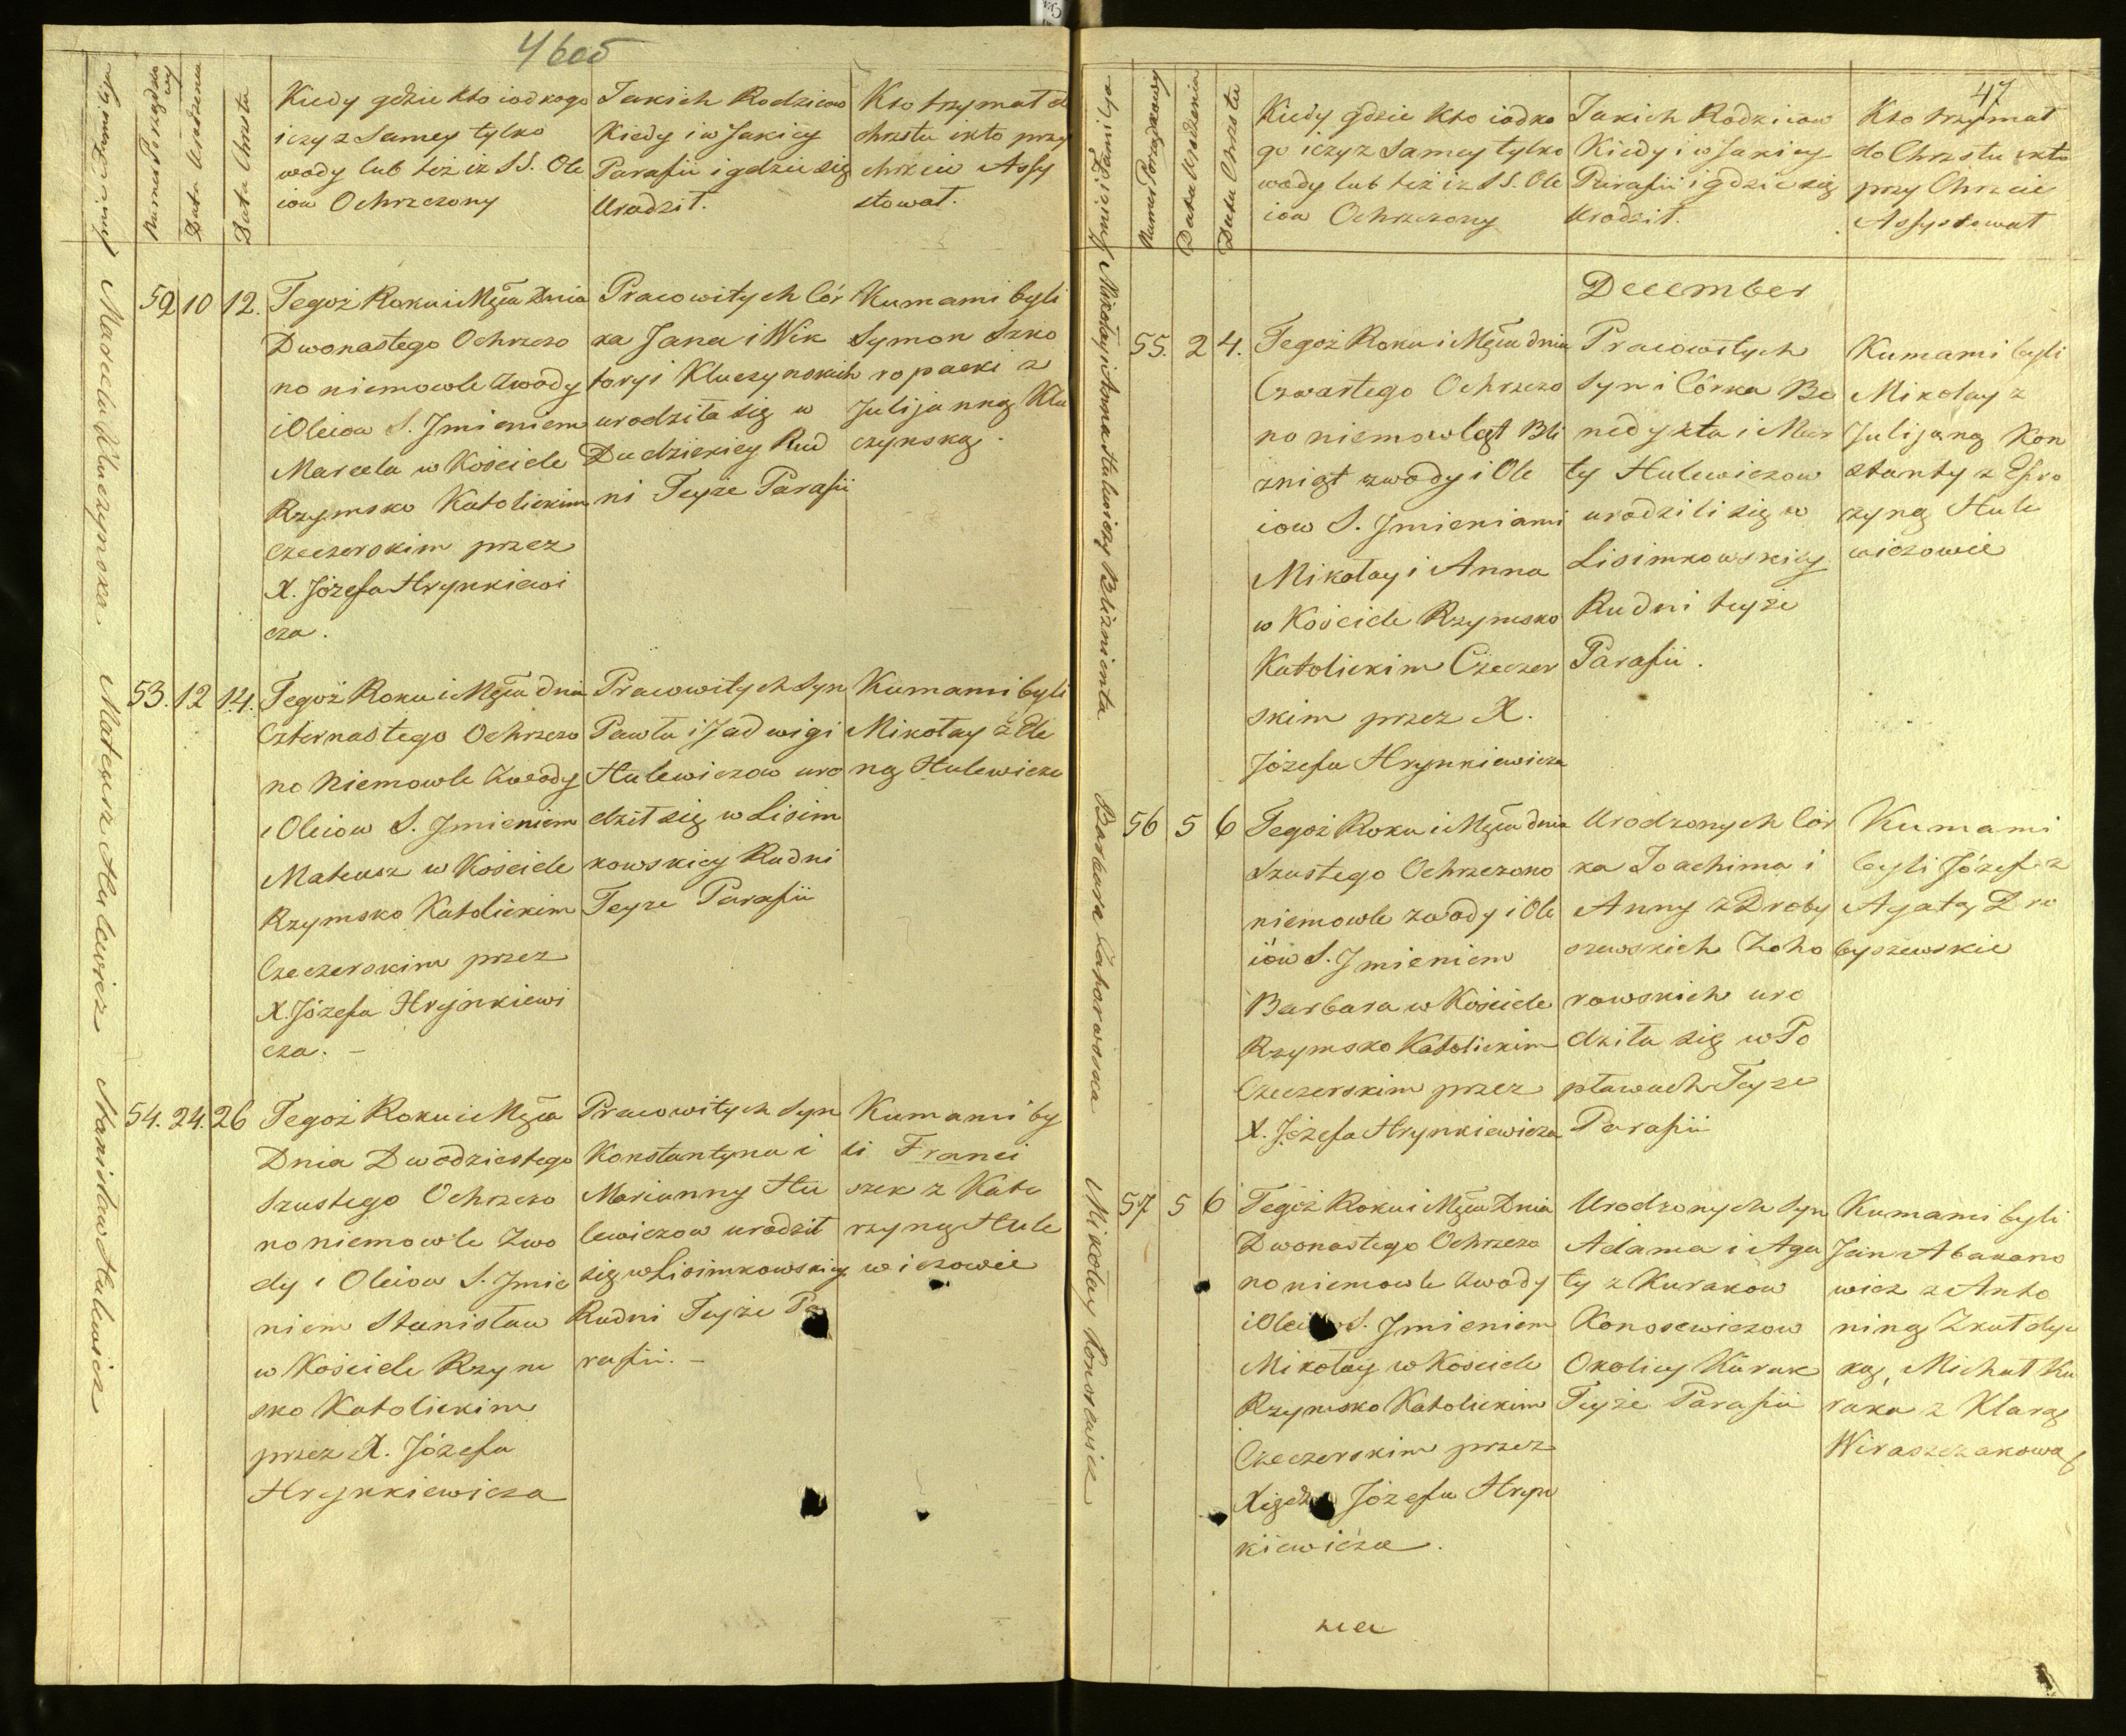 46 об
Numer Porządkowy
Data Urodzenia
Data Chrztu
Kiedy gdzie kto i od kogo
i czy z Samey tylko
wody lub też iz SS. Ole
iow Ochrzczony
Jakich Rodzicow
Kiedy i w Jakiey
Parafii i gdzie się
Urodził.
Kto trzymał d
chrztu i kto przy
chrzcie Assy
stował.
Marcella Kluczynska
52 10 12.
Tegoż Roku i Msca Dnia
Dwonastego Ochrzczo
no niemowle zwody
i Oleiow S. Jmieniem
Marcela w Kościele
Rzymsko Katolickim
Czeczerskim przez
X. Józefa Hrynkiewi
cza.
Pracowitych Cór
ka Jana i Wik
toryi Kluczynskich
urodziła się w
Dudzickiey Rud
ni Teyże Parafii
Kumami byli
Symon Szko
ropacki z
Julijanną Klu
czynską.
Mateusz Hulewicz
53. 12 14.
Tegoż Roku i Msca dnia
Czternastego Ochrzczo
no Niemowle Zwody
i Oleiow S. Jmieniem
Mateusz w Kościele
Rzymsko Katolickim
Czeczerskim przez
X. Józefa Hrynkiewi
cza. –
Pracowitych Syn
Pawła i Jadwigi
Hulewiczow uro
dził się w Lisim
kowskiey Rudni
Teyże Parafii
Kumami byli
Mikołay z Ele
ną Hulewicze
Stanisław Hulewicz
54. 24. 26
Tegoż Roku i Msca
Dnia Dwodziestego
Szustego Ochrzczo
no niemowle Zwo
dy i Oleiow S. Jmie
niem Stanisław
w Kościele Rzym
sko Katolickim
przez X. Józefa
Hrynkiewicza
Pracowitych Syn
Konstantyna i
Marianny Hu
lewiczow urodził
się w Lisimkowskiey
Rudni Teyże Pa
rafii. –
Kumami by
li Franci
szek z Kata
rzyną Hule
wiczowie
47
Numer Porządkowy
Data Urodzenia
Data Chrztu
Kiedy gdzie kto i od ko
go i czy z Samey tylko
wody lub też iz SS. Ole
iow Ochrzczony
Jakich Rodzicow
Kiedy i w Jakiey
Parafii i gdzie się
Urodził.
Kto trzymał
do Chrztu i kto
przy Chrzcie
Assystował
December
Mikołay i Anna Hulewiczy Blizniента
55. 2 4.
Tegoż Roku i Msca dnia
Czwartego Ochrzczo
no niemowląt Bli
zniąt zwody i Ole
iow S. Jmieniami
Mikołay i Anna
w Kościele Rzymsko
Katolickim Czeczer
skim przez X.
Józefa Hrynkiewicza
Pracowitych
Syn i Córka Be
nedykta i Mar
ty Hulewiczow
urodzili się w
Lisimkowskiey
Rudni teyże
Parafii.
Kumami byli
Mikołay z
Julijaną Kon
stanty z Efro
zyną Hule
wiczowie
Barbara Zahorowska
56 5 6
Tegoż Roku i Msca dnia
Szustego Ochrzczono
niemowle zwody i Ole
iów S. Jmieniem
Barbara w Kościele
Rzymsko Katolickim
Czeczerskim przez
X. Józefa Hrynkiewicza
Urodzonych Cór
ka Joachima i
Anny z Droby
szewskich Zaho
rowskich uro
dziła się w Po
pławach Teyże
Parafii
Kumami
byli Józef z
Agatą Dro
byszewskie
Mikołay Konosewicz
57 5 6
Tegoż Roku i Msca Dnia
Dwonastego Ochrzczo
no niemowle zwody
i Oleiow S. Jmieniem
Mikołay w Kościele
Rzymsko Katolickim
Czeczerskim przez
Xiędza Józefa Hryn
kiewicza.
Urodzonych Syn
Adama i Aga
ty z Kurakow
Konosewiczow
Okolicy Kurak
Teyże Parafii
Kumami byli
Jan Abakano
wicz z Anto
niną
ką, Michał Ku
raka z Klarą
Wiraszczakową